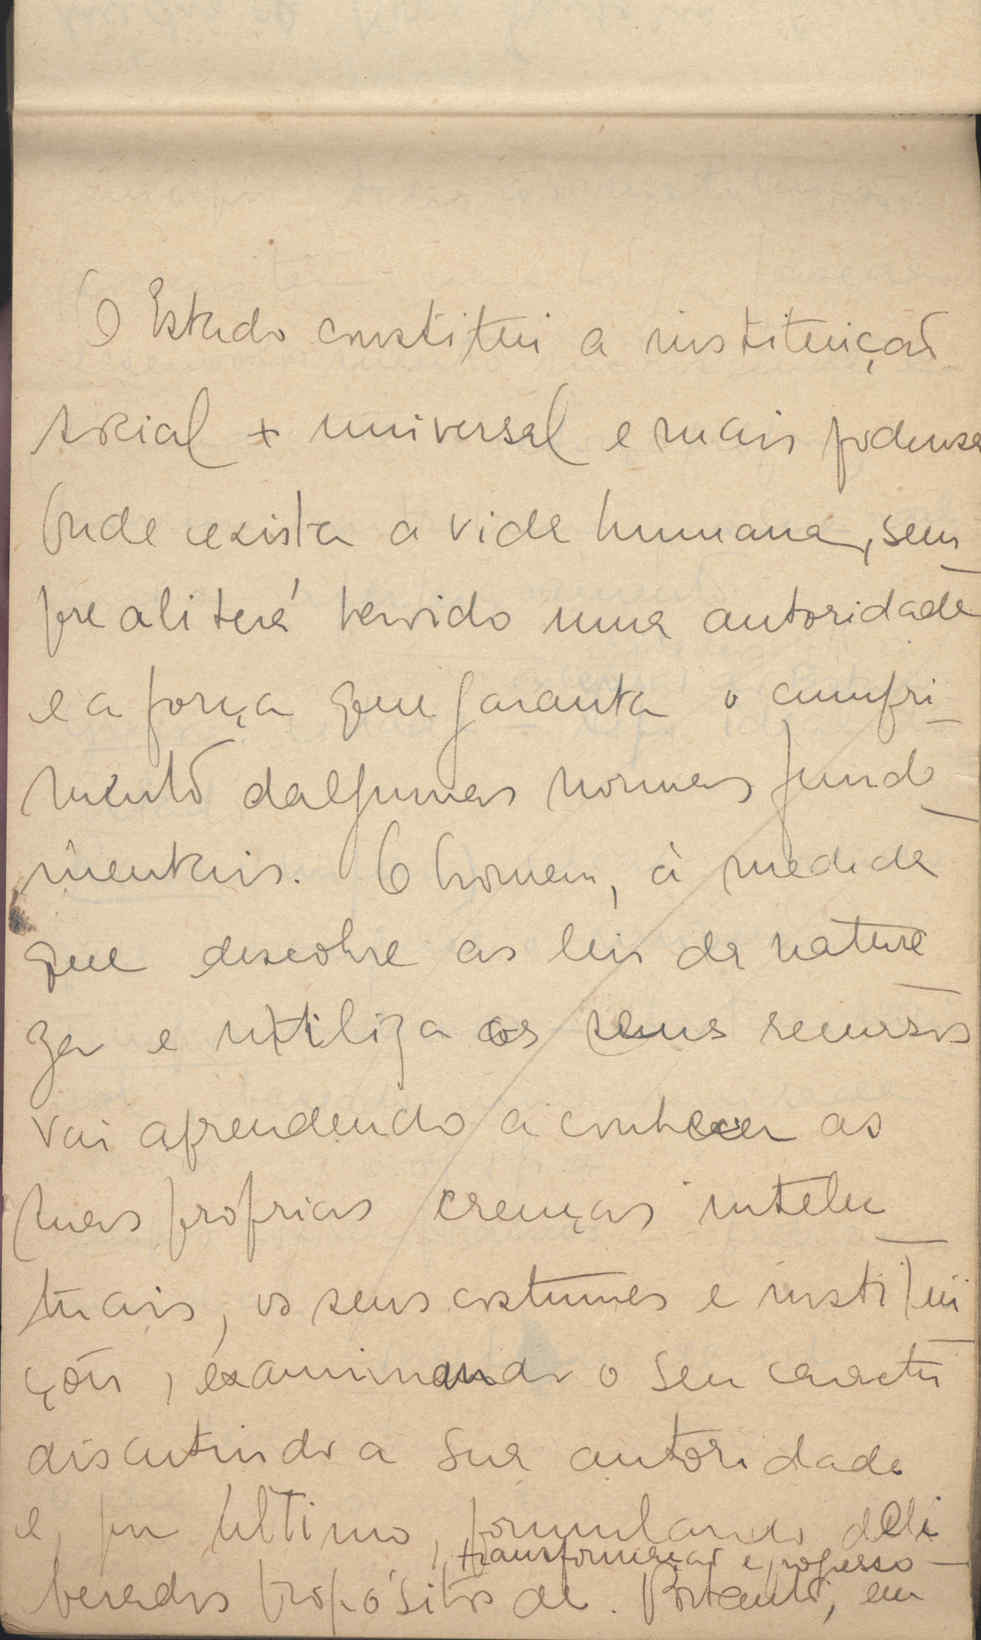 O Estado constitui a instituição
social + universal e mais poderosa
Onde exista a vida humana, sem
pre ali terá havido uma autoridade
e a força que garanta o cumpri
mento dalgumas normas funda
mentais. O homem, à medida
que descobre as leis da nature
za e utiliza os seus recursos
vai aprendendo a conhecer as
suas proprias crenças intelec
tuais, os seus costumes e institui
ções, examinando o seu caracter
discutindo a sua autoridade
e, por último, formulando deli
transformação e progresso
berados propósitos de. Portanto, em